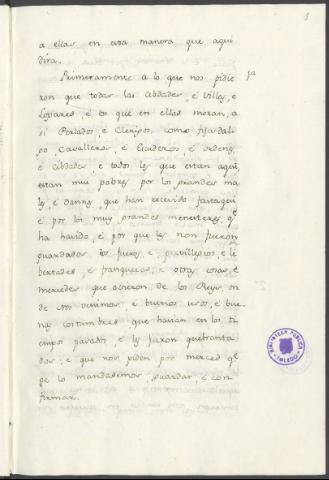 a ellas en esta manera que aqui
dira.
Primeramente a lo que nos pidie 1a
ron que todas las Cibdades, é Villas, e
Logares, é los que en ellas moran, a
si Perlados, é Clerigos, como
Cavalleros, é Escuderos, é Ordenes
é Cibdades, e todos los que estan aqui,
estan mui pobres por los grandes ma
les, é daños, que han recevido fastaqui
é por los muy grandes menesteres, qe
ha havido, é por que les non fueron
guardados los fueros, e previllegios, e li
bertades, é franquezas, e otras cosas, é
mercedes que ovieron de los Reyes, on
de Nos venimos, é buenos usos, é bue
nas costumbres, que havian en los ti
empos pasados, é les fueron quebranta
das, e que nos piden por merced qe
ge lo mandasemos, guardar, é con
firmar.
BIBLIOTECA PUBLICA
TOLEDO